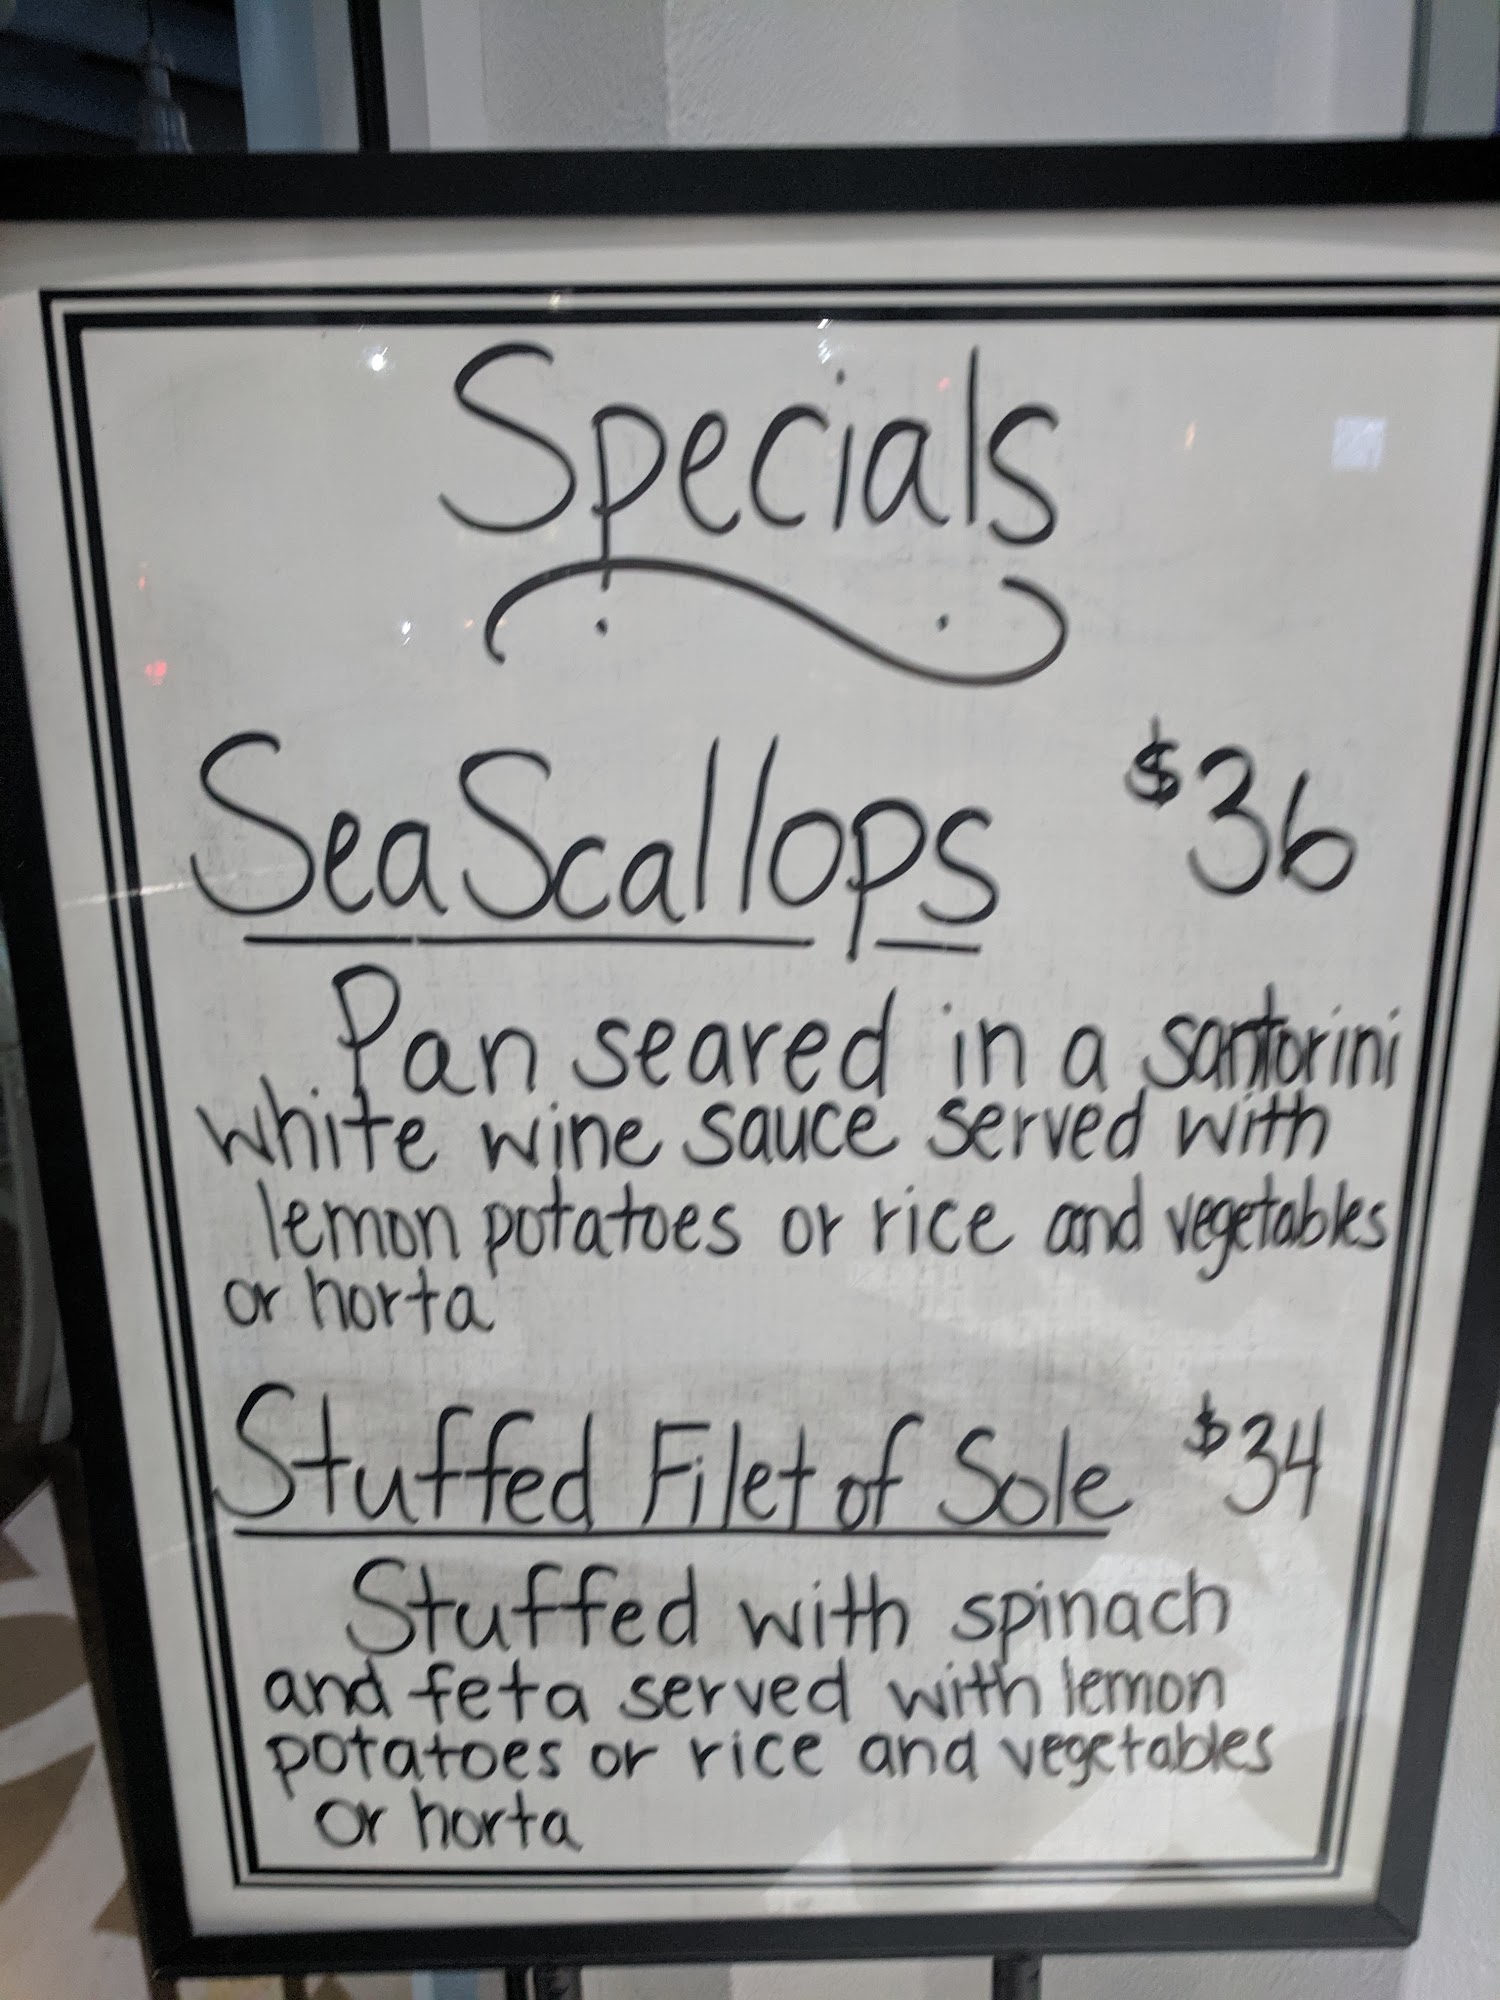 Specials
Sea Scallops $36
Pan seared in a santorini
white wine sauce served with
lemon potatoes or rice and vegetables
or horta
Stuffed Filet of Sole $34
Stuffed with spinach
and feta served with lemon
potatoes or rice and vegetables
or horta